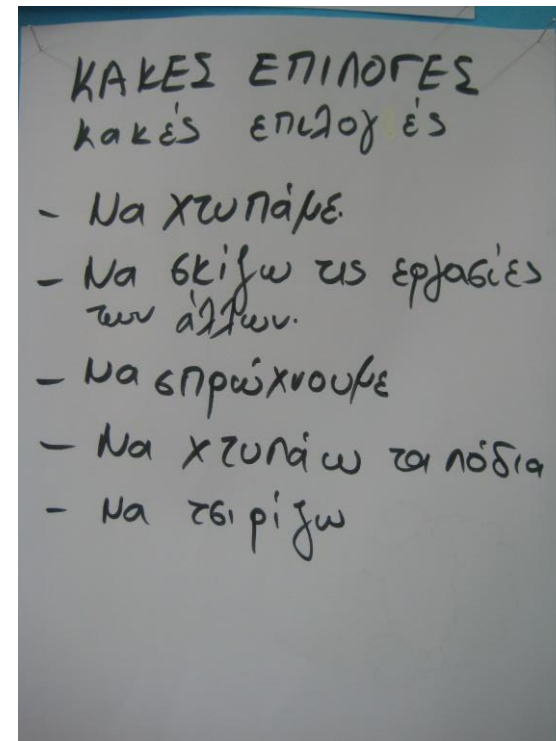 ΚΑΚΕΣ ΕΠΙΛΟΓΕΣ
κακές επιλογές
- Να χτυπάμε.
- Να σκίζω τις εργασίες
των άλλων.
- Να σπρώχνουμε
- Να χτυπάω τα πόδια
- Να τσιρίζω